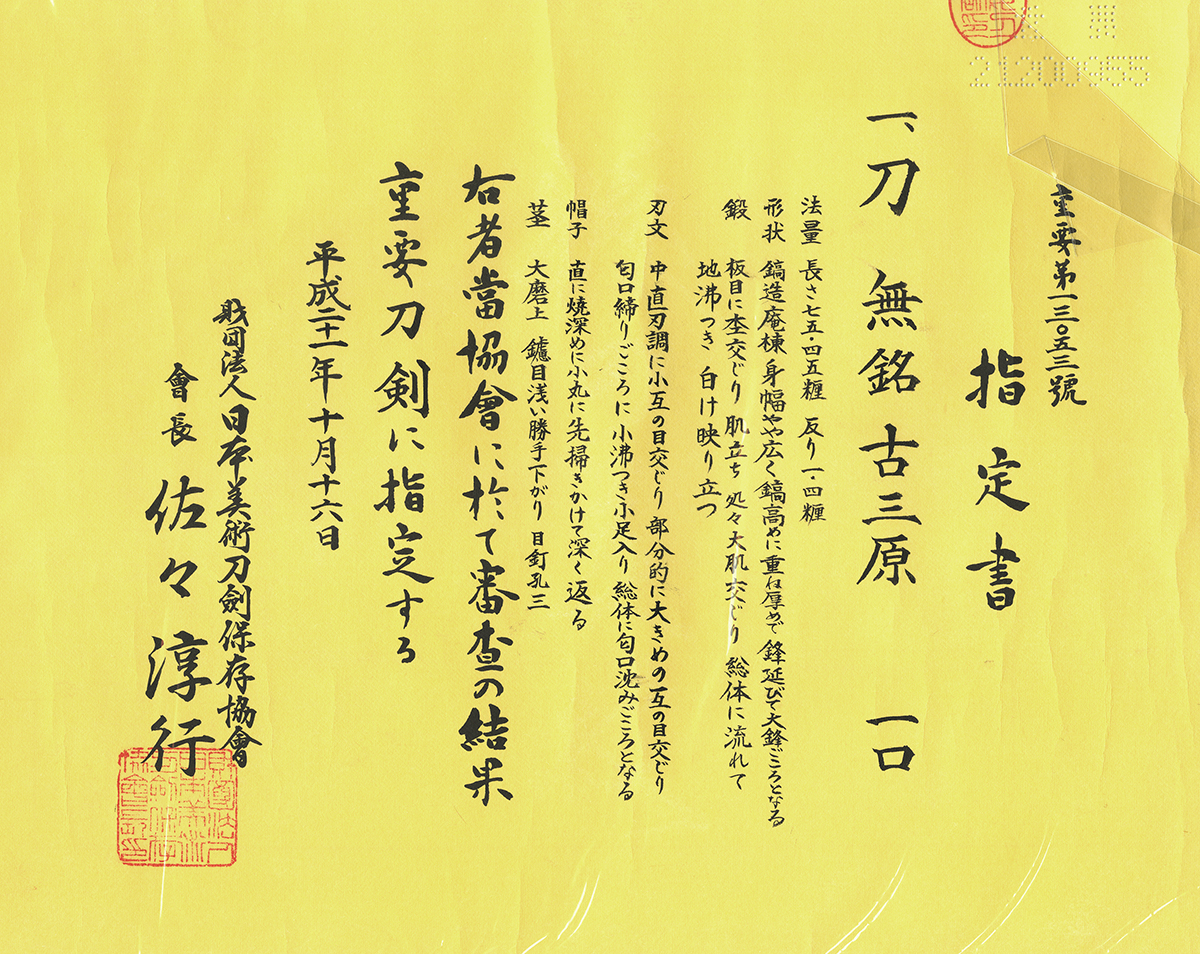 重要第一三〇五三號
指定書
一、刀 無銘 古三原 一口
法量 長さ七五・四五糎 反り一・四糎
形状 鎬造庵棟 身幅やや広く 鎬高めに重ね厚めで 鋒延びて大鋒ごころとなる
鍛 板目に杢交じり 肌立ち 処々大肌交じり 総体に流れて
地沸つき 白け映り立つ
刃文 中直刃調に小互の目交じり 部分的に大きめの互の目交じり
匂口締りごころに 小沸つき小足入り 総体に匂口沈みごころとなる
帽子 直に焼深めに小丸に先掃きかけて深く返る
茎 大磨上 鑢目浅い勝手下がり 目釘孔三
右者當協會に於て審査の結果
重要刀剣に指定する
平成二十一年十月十六日
財団法人日本美術刀劍保存協會
會長 佐々淳行
21200955